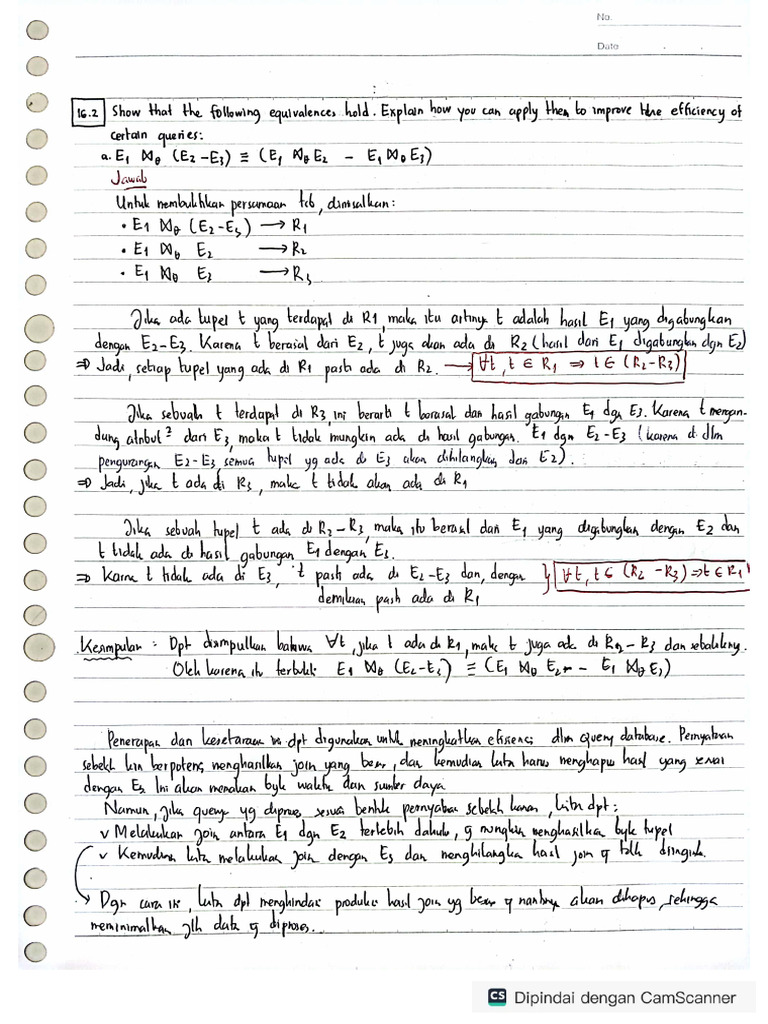 No.
Date
16.2 Show that the following equivalences hold. Explain how you can apply them to improve the efficiency of
certain queries:
a. E1 ⋈θ (E2 – E3) ≡ (E1 ⋈θ E2 – E1 ⋈θ E3)
Jawab
Untuk membuktikan persamaan tsb, dimisalkan:
• E1 ⋈θ (E2 – E3) → R1
• E1 ⋈θ E2 → R2
• E1 ⋈θ E3 → R3
Jika ada tupel t yang terdapat di R1, maka itu artinya t adalah hasil E1 yang digabungkan
dengan E2 – E3. Karena t berasal dari E2, t juga akan ada di R2 (hasil dari E1 digabungkan dgn E2)
⇒ Jadi, setiap tupel yang ada di R1 pasti ada di R2. → ∀t, t ∈ R1 ⇒ t ∈ (R2 – R3)
Jika sebuah t terdapat di R3, ini berarti t berasal dari hasil gabungan E1 dgn E3. Karena t mengan-
dung atribut² dari E3, maka t tidak mungkin ada di hasil gabungan E1 dgn E2 – E3 (karena di dlm
pengurangan E2 – E3, semua tupel yg ada di E3 akan dihilangkan dari E2).
⇒ Jadi, jika t ada di R3, maka t tidak akan ada di R1
Jika sebuah tupel t ada di R2 – R3, maka itu berasal dari E1 yang digabungkan dengan E2 dan
t tidak ada di hasil gabungan E1 dengan E3.
⇒ Karna t tidak ada di E3, t pasti ada di E2 – E3 dan, dengan } ∀t, t ∈ (R2 – R3) ⇒ t ∈ R1
demikian pasti ada di R1
Kesimpulan : Dpt disimpulkan bahwa ∀t, jika t ada di R1, maka t juga ada di R2 – R3 dan sebaliknya.
Oleh karena itu terbukti: E1 ⋈θ (E2 – E3) ≡ (E1 ⋈θ E2 – E1 ⋈θ E3)
Penerapan dan kesetaraan ini dpt digunakan untuk meningkatkan efisiensi dlm query database. Pernyataan
sebelah kiri berpotensi menghasilkan join yang besar, dan kemudian kita harus menghapus hasil yang sesuai
dengan E3. Ini akan memakan byk waktu dan sumber daya.
Namun, jika query yg diproses sesuai bentuk pernyataan sebelah kanan, kita dpt:
v Melakukan join antara E1 dgn E2 terlebih dahulu, yg mungkin menghasilkan byk tupel
v Kemudian kita melakukan join dengan E3 dan menghilangkan hasil join yg tdk diinginkan.
→ Dgn cara ini, kita dpt menghindari produksi hasil join yg besar yg nantinya akan dihapus, sehingga
meminimalkan jlh data yg diproses.
CS Dipindai dengan CamScanner